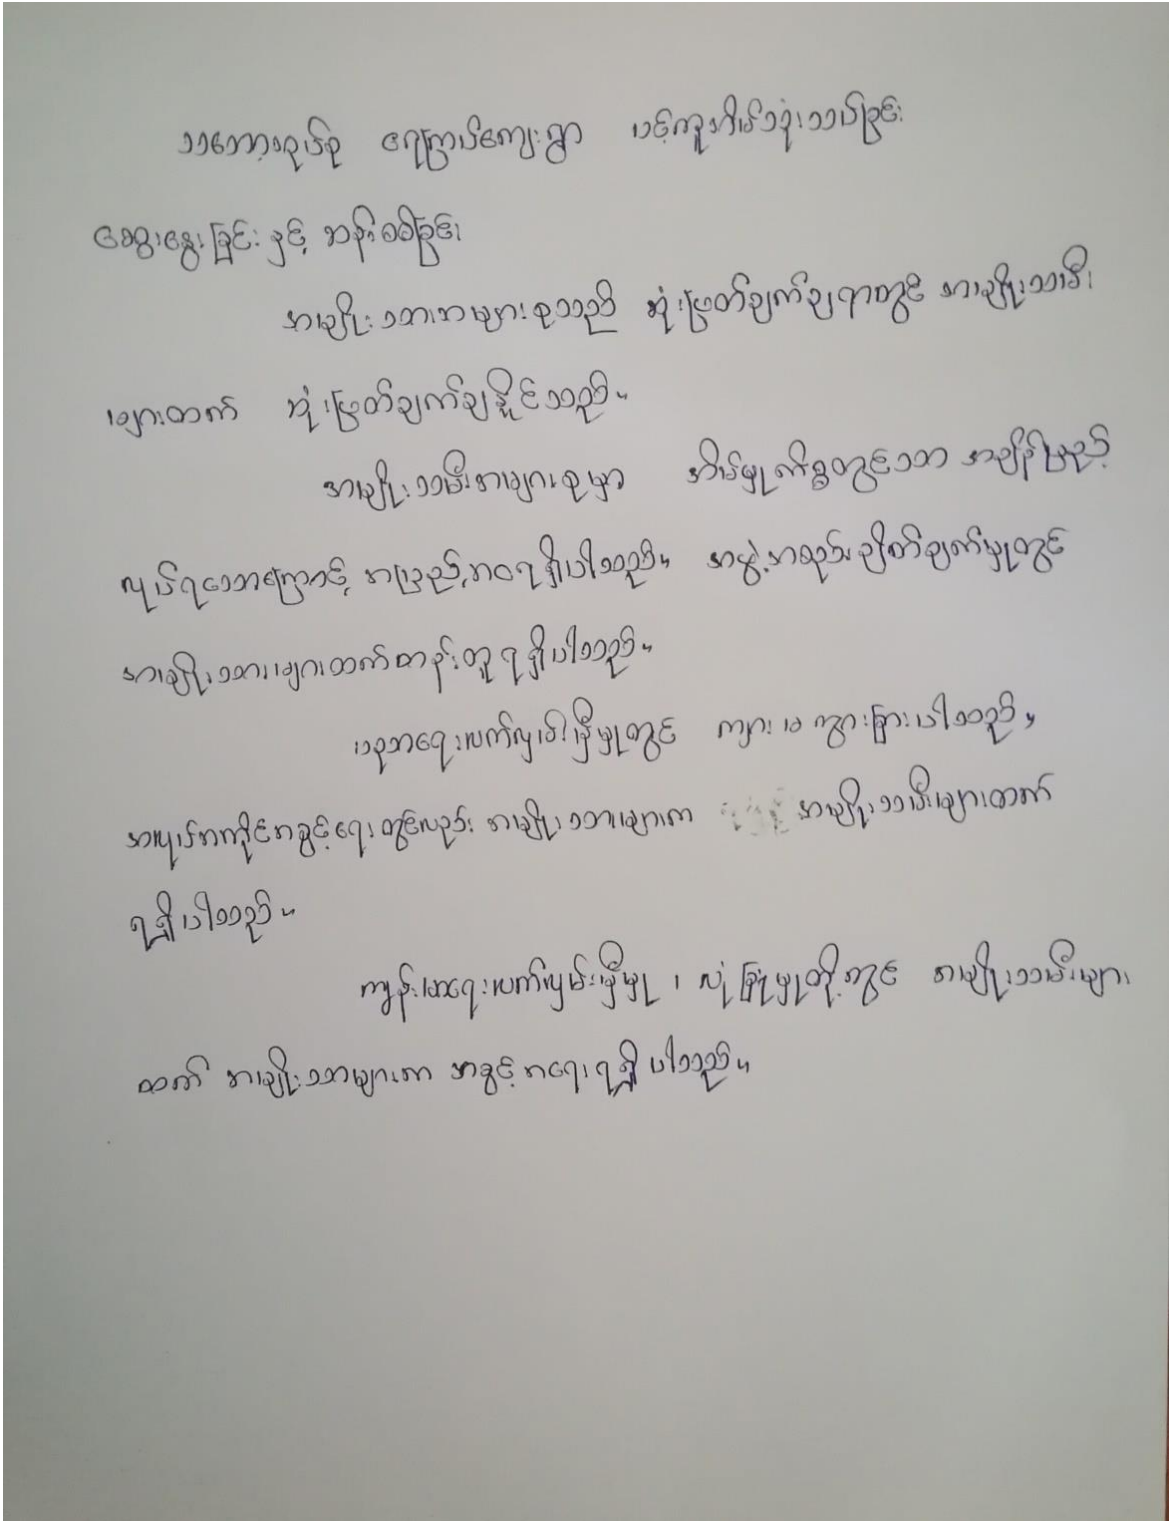 သဘော့ခုပ်စု ရေကြပ်ကျေးရွာ ပင့်ကူအိမ်သုံးသပ်ခြင်း
ဆွေးနွေးခြင်းနှင့် ဆန်းစစ်ခြင်း
အမျိုးသားအများစုသည် ဆုံးဖြတ်ချက်ချရာတွင် အမျိုးသမီး
များထက် ဆုံးဖြတ်ချက်ချနိုင်သည်။
အမျိုးသမီးအများစုမှာ အိမ်မှုကိစ္စတွင်သာ အချိန်ပြည့်
လုပ်ရသောကြောင့် အပြည့်အဝရရှိပါသည်။ အဖွဲ့အစည်းချိတ်ချက်မှုတွင်
အမျိုးသားများထက်တန်းတူရရှိပါသည်။
ပညာရေးလက်လှမ်းမှီမှုတွင် ကျား မ ကွာခြားပါသည်။
အလုပ်အကိုင်အခွင့်ရေးတွင်လည်း အမျိုးသားများက အမျိုးသမီးများထက်
ရရှိပါသည်။
ကျန်းမာရေးလက်လှမ်းမှီမှု ၊ လုံခြုံမှုတို့တွင် အမျိုးသမီးများ
ထက် အမျိုးသားများက အခွင့်အရေးရရှိပါသည်။